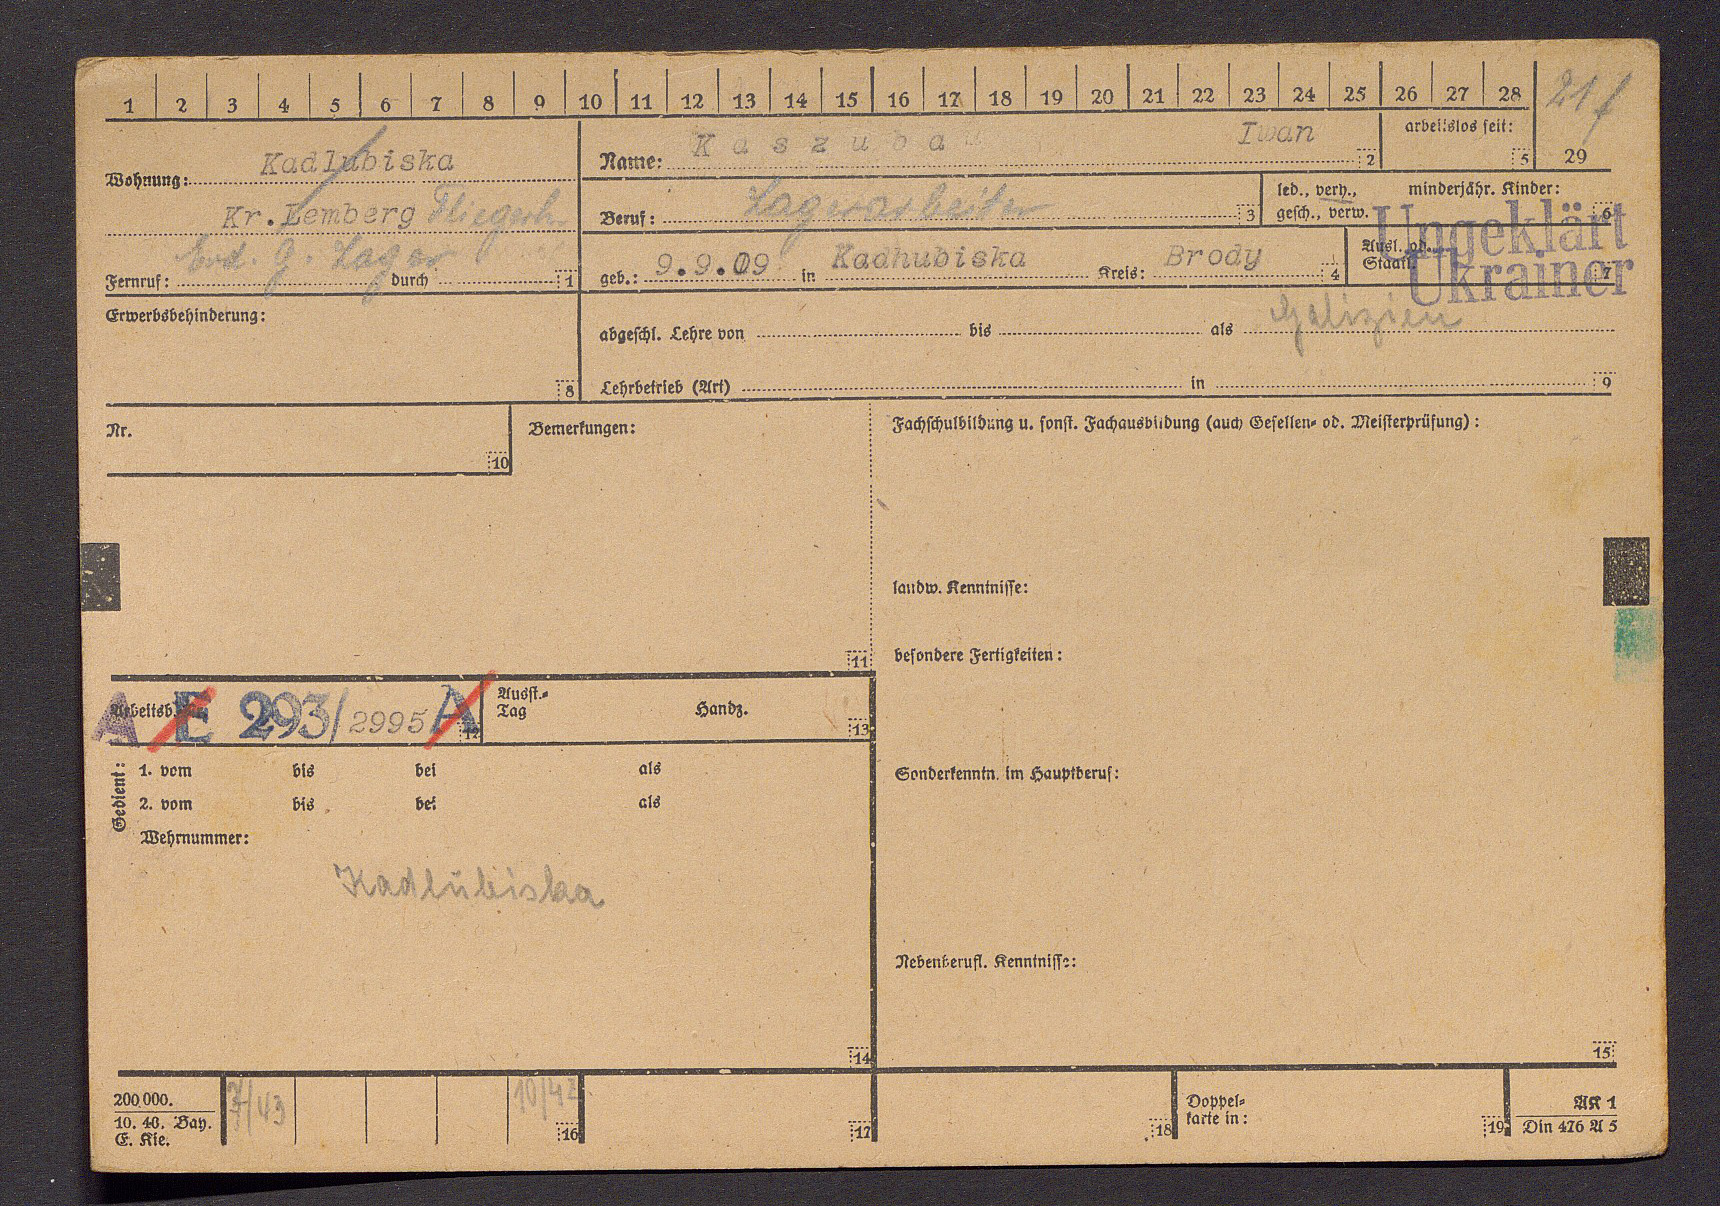 1 2 3 4 5 6 7 8 9 10 11 12 13 14 15 16 17 18 19 20 21 22 23 24 25 26 27 28
21 f
29
Wohnung: Kadlubiska
Kr. Lemberg Fliegerh.
Erd. G. Lager
Fernruf: durch 1
Name: Kaszuba Iwan 2
arbeitslos seit: 5
Beruf: Lagerarbeiter 3
led., verh., gesch., verw.
minderjähr. Kinder: 6
geb.: 9.9.09 in Kadhubiska Kreis: Brody 4
Ausl. od. Staatl. 7
Ungeklärt
Ukrainer
Galizien
Erwerbsbehinderung:
8
abgeschl. Lehre von bis als
Lehrbetrieb (Art) in 9
Nr.
10
Bemerkungen:
11
Fachschulbildung u. sonst. Fachausbildung (auch Gesellen- od. Meisterprüfung):
landw. Kenntnisse:
besondere Fertigkeiten:
A Arbeitsb. E 293/2995 A 12
Ausst.-
Tag Handz. 13
Gedient:
1. vom bis bei als
2. vom bis bei als
Wehrnummer:
Kadlubiska
14
Sonderkenntn. im Hauptberuf:
Nebenberufl. Kenntnisse:
15
200,000.
10. 40. Bay.
E. Kie.
7/43
10/42
16
17
18
Doppel-
karte in: 19
AK 1
Din 476 A 5